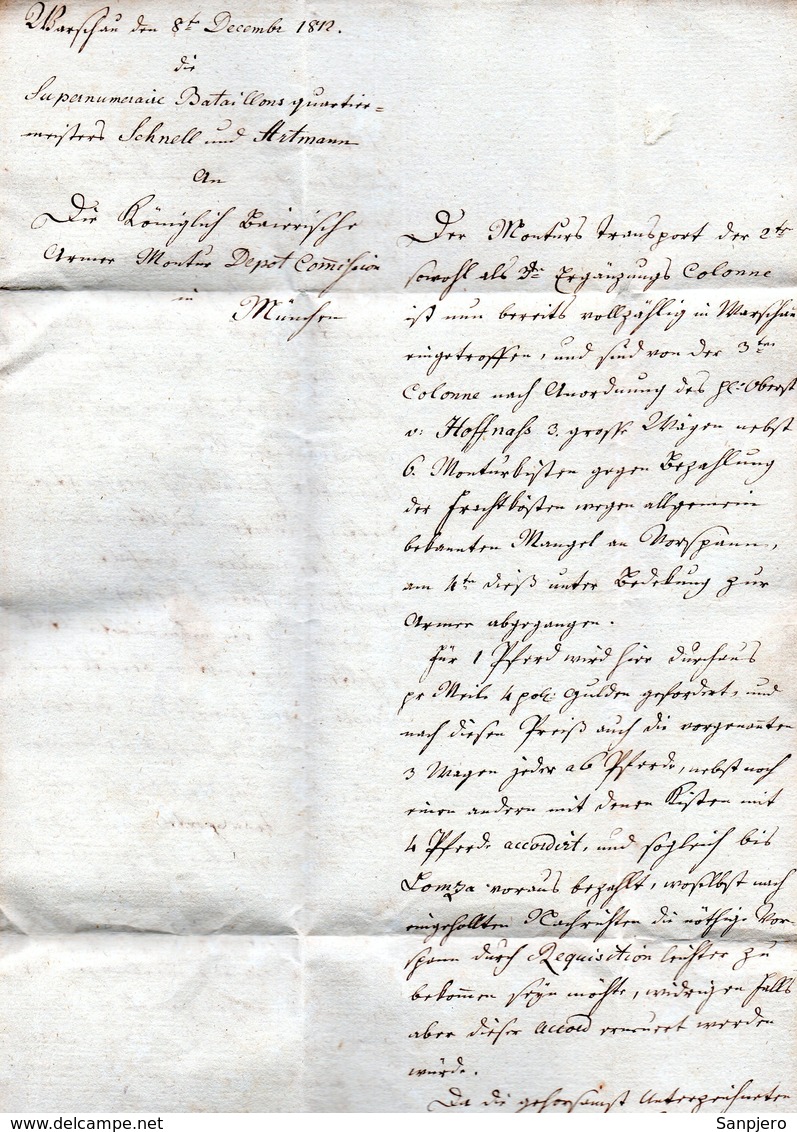 Warschau den 8t Decembr 1812.
die
Supernumeraire Bataillons quartier=
meisters Schnell und Artmann
An
Die Königlich Baierische
Armee Montur Depot Com̅ission
in
München
Der Monturs transport der 2ten
sowohl als 3ten Ergänzungs Colonne
ist nun bereits vollzählig in Warschau
eingetroffen, und sind von der 3ten
Colonne nach Anordnung des Oberst
v: Hoffnaß 3. große Wägen nebst
6. Monturkisten gegen Bezahlung
der Frachtkösten wegen allgemein
bekannten Mangel an Vorspann,
am 4ten dieß unter Bedekung zur
Armee abgegangen.
Für 1 Pferd wird hier durchaus
pr Meile 4 pol: Gulden gefordert, und
nach diesen Preiß auch die vorgenannten
3 Wagen jeder a 6 Pferde, nebst noch
einen andern mit denen Kisten mit
4 Pferde accordirt, und sogleich bis
Lomza voraus bezahlt, woselbst nach
eingehollten Nachrichten die nöthige Vor-
spann durch Requisition leichter zu
bekommen seyn möchte, widrigen Falls
aber dieser Accord erneuert werden
würde.
Da die gehorsamst Unterzeichneten
Sanpjero